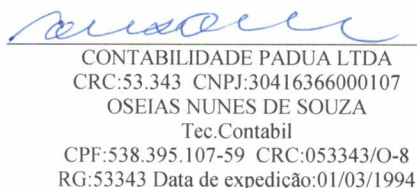 CONTABILIDADE PADUA LTDA
CRC:53.343 CNPJ:30416366000107
OSEIAS NUNES DE SOUZA
Tec.Contabil
CPF:538.395.107-59 CRC:053343/O-8
RG:53343 Data de expedição:01/03/1994